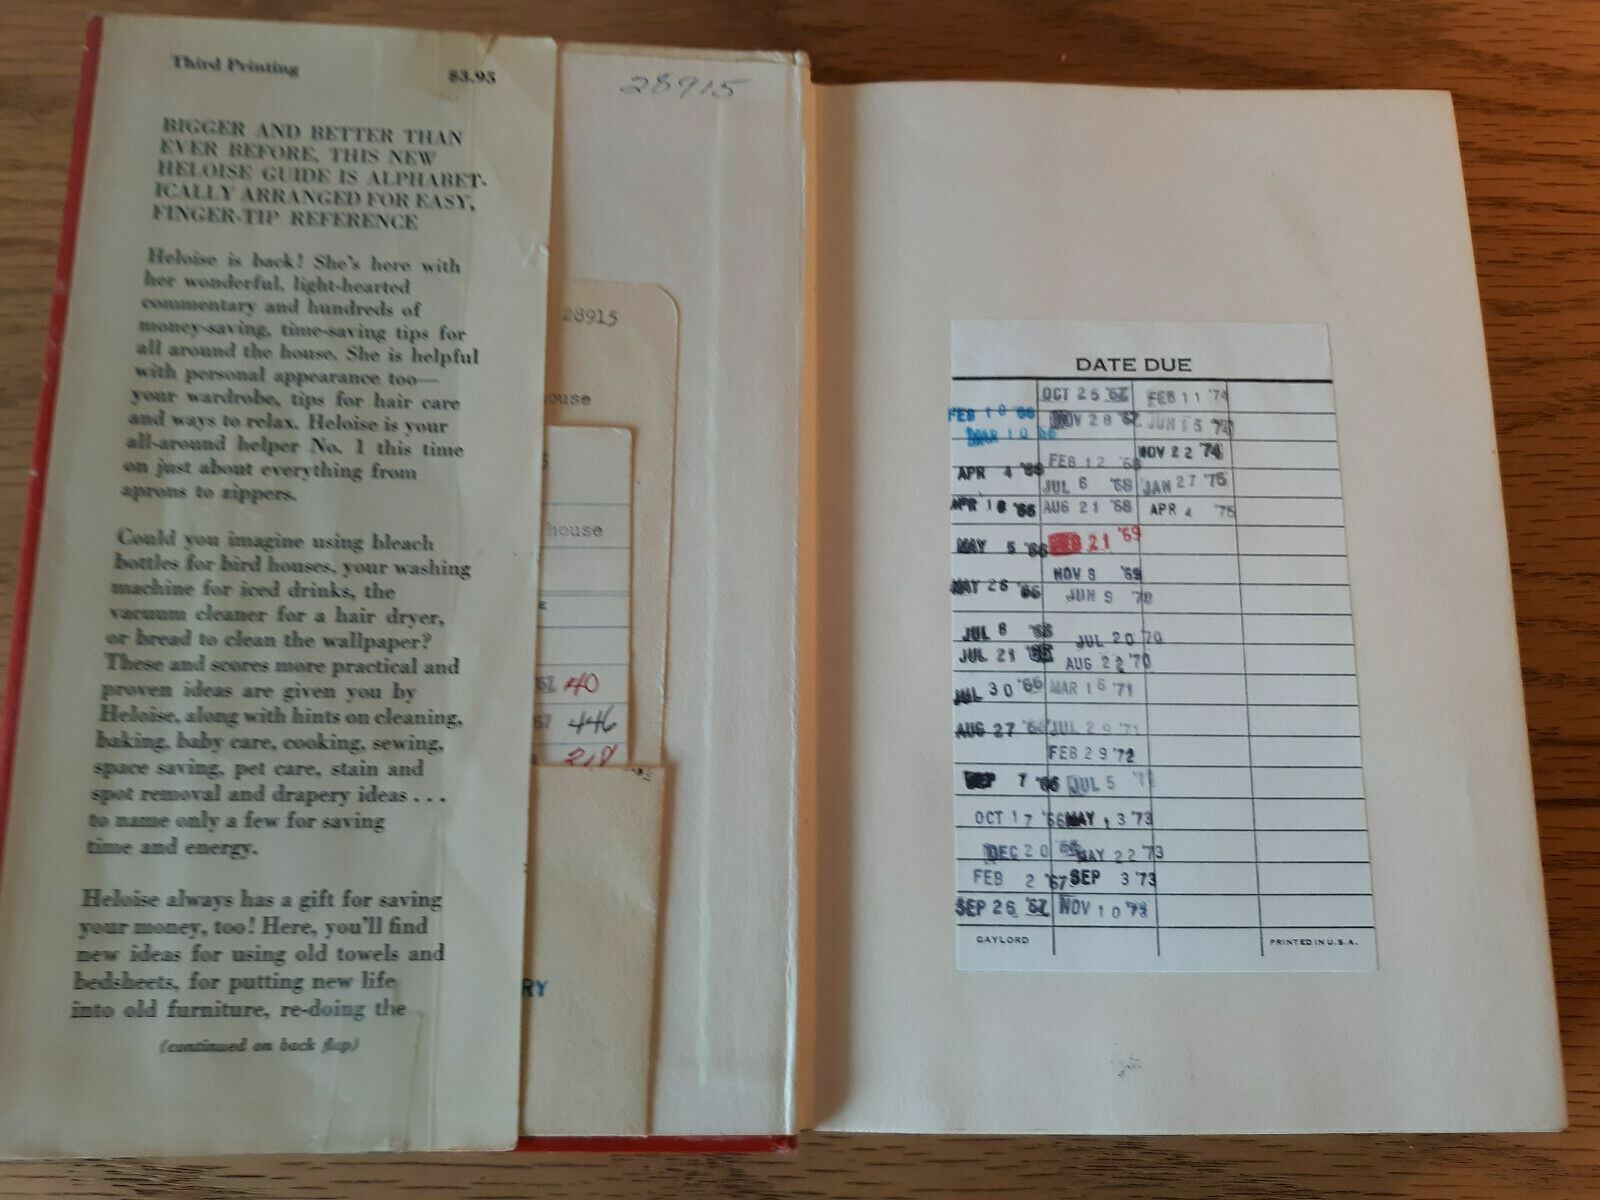 Third Printing
$3.95
BIGGER AND BETTER THAN
EVER BEFORE, THIS NEW
HELOISE GUIDE IS ALPHABET-
ICALLY ARRANGED FOR EASY,
FINGER-TIP REFERENCE
Heloise is back! She's here with
her wonderful, light-hearted
commentary and hundreds of
money-saving, time-saving tips for
all around the house. She is helpful
with personal appearance too—
your wardrobe, tips for hair care
and ways to relax. Heloise is your
all-around helper No. 1 this time
on just about everything from
aprons to zippers.
Could you imagine using bleach
bottles for bird houses, your washing
machine for iced drinks, the
vacuum cleaner for a hair dryer,
or bread to clean the wallpaper?
These and scores more practical and
proven ideas are given you by
Heloise, along with hints on cleaning,
baking, baby care, cooking, sewing,
space saving, pet care, stain and
spot removal and drapery ideas . . .
to name only a few for saving
time and energy.
Heloise always has a gift for saving
your money, too! Here, you'll find
new ideas for using old towels and
bedsheets, for putting new life
into old furniture, re-doing the
(continued on back flap)
28915
28915
ouse
house
40
67 446
218
RY
DATE DUE
FEB 10 '66
MAR 10 66
APR 4 '66
APR 18 '66
MAY 5 '66
MAY 26 '66
JUL 8 '66
JUL 21 '66
JUL 30 '66
AUG 27 '66
SEP 7 '66
OCT 17 '66
DEC 20 '66
FEB 2 '67
SEP 26 '67
OCT 25 '67
NOV 28 '67
FEB 12 '68
JUL 6 '68
AUG 21 '68
21 '69
NOV 9 '69
JUN 9 70
JUL 20 70
AUG 22 '70
MAR 16 '71
JUL 29 '71
FEB 29 '72
JUL 5
MAY 13 '73
MAY 22 '73
SEP 3 '73
NOV 10 '73
FEB 11 '74
JUN 15 '74
NOV 22 '74
JAN 27 '75
APR 4 '75
GAYLORD
PRINTED IN U.S.A.